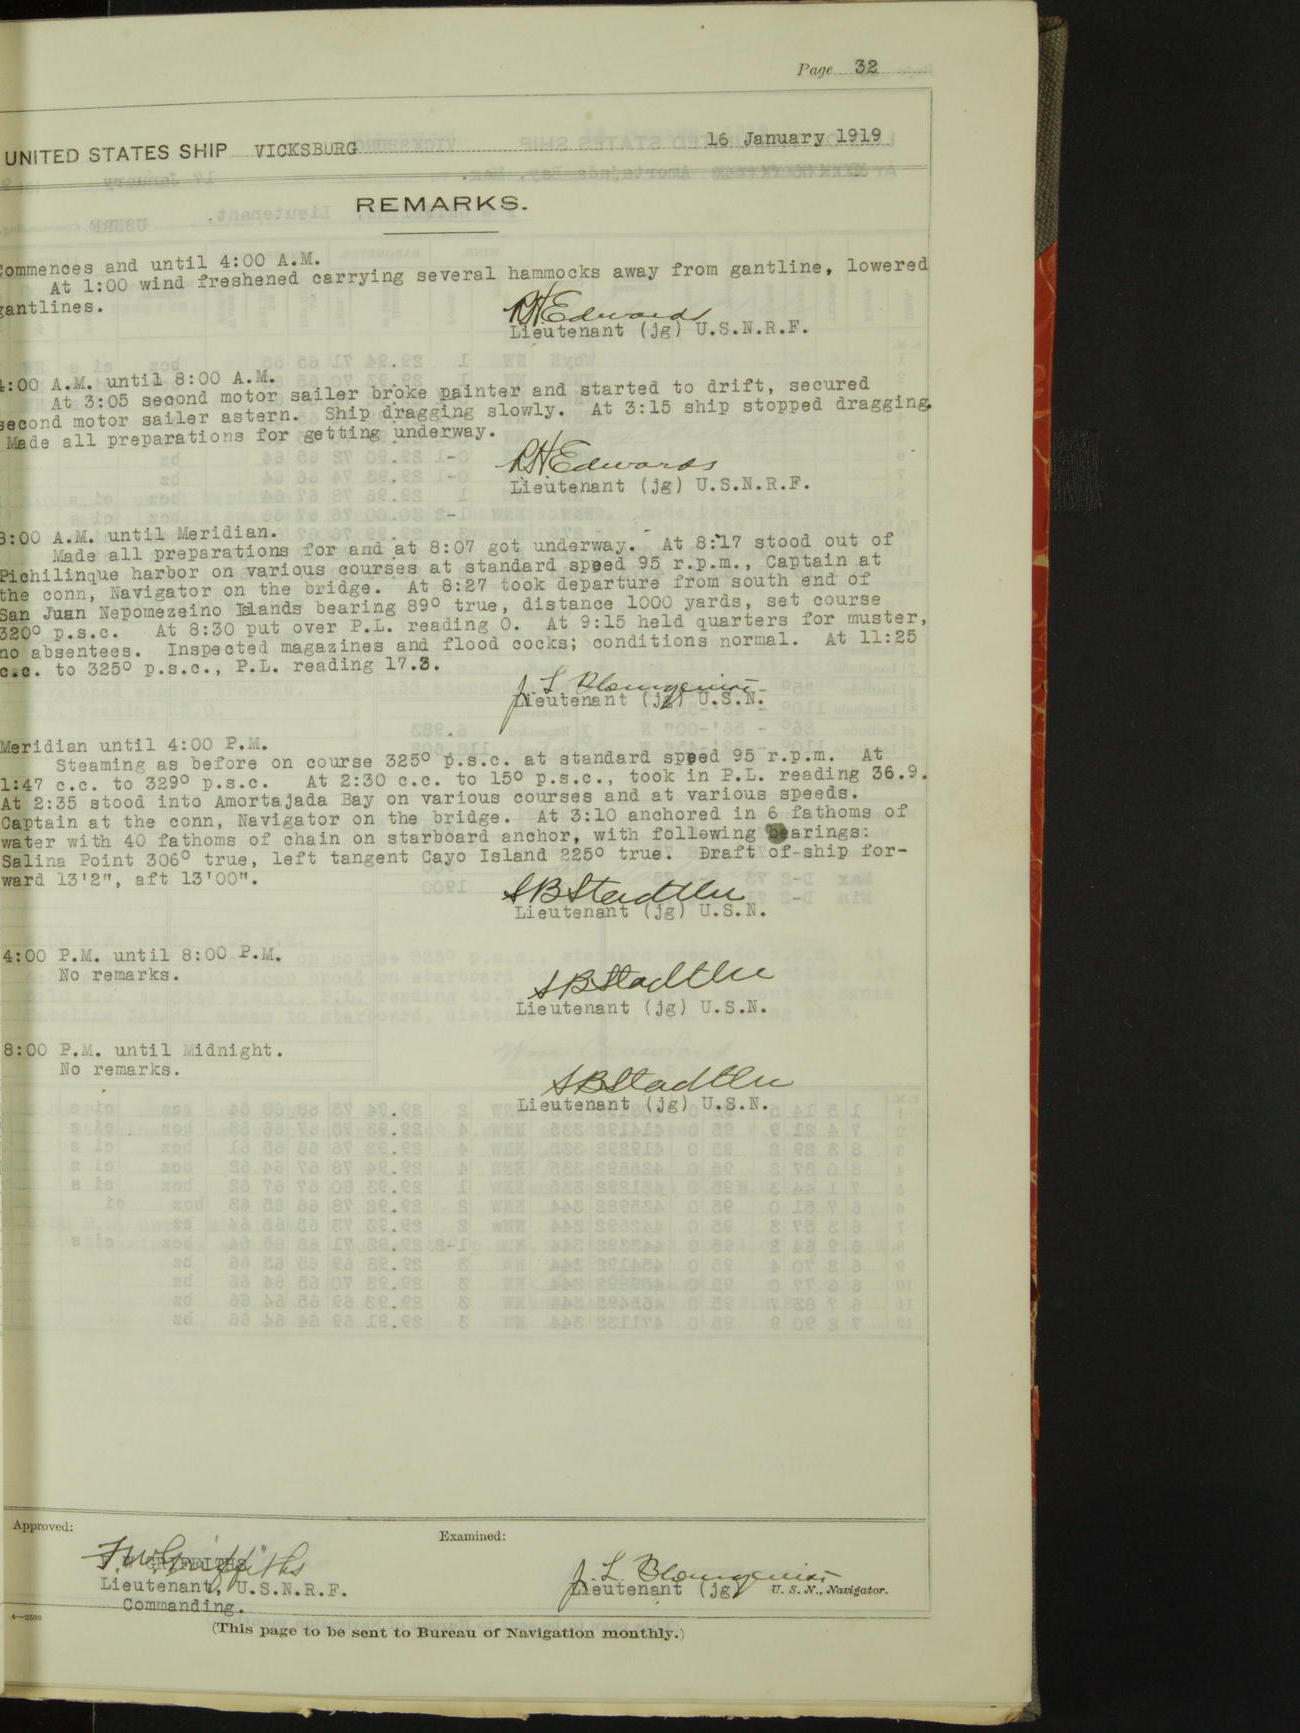 Page 32
UNITED STATES SHIP VICKSBURG 16 January 1919
REMARKS.
Commences and until 4:00 A.M.
At 1:00 wind freshened carrying several hammocks away from gantline, lowered
gantlines.
R.H. Edwards
Lieutenant (jg) U.S.N.R.F.
4:00 A.M. until 8:00 A.M.
At 3:05 second motor sailer broke painter and started to drift, secured
second motor sailer astern. Ship dragging slowly. At 3:15 ship stopped dragging.
Made all preparations for getting underway.
R.H. Edwards
Lieutenant (jg) U.S.N.R.F.
8:00 A.M. until Meridian.
Made all preparations for and at 8:07 got underway. At 8:17 stood out of
Pichilinque harbor on various courses at standard speed 95 r.p.m., Captain at
the conn, Navigator on the bridge. At 8:27 took departure from south end of
San Juan Nepomezeino Islands bearing 89° true, distance 1000 yards, set course
320° p.s.c. At 8:30 put over P.L. reading 0. At 9:15 held quarters for muster,
no absentees. Inspected magazines and flood cocks; conditions normal. At 11:25
c.c. to 325° p.s.c., P.L. reading 17.3.
J. L.
Lieutenant (jg) U.S.N.
Meridian until 4:00 P.M.
Steaming as before on course 325° p.s.c. at standard speed 95 r.p.m. At
1:47 c.c. to 329° p.s.c. At 2:30 c.c. to 15° p.s.c., took in P.L. reading 36.9.
At 2:35 stood into Amortajada Bay on various courses and at various speeds.
Captain at the conn, Navigator on the bridge. At 3:10 anchored in 6 fathoms of
water with 40 fathoms of chain on starboard anchor, with following bearings:
Salina Point 306° true, left tangent Cayo Island 225° true. Draft of ship for-
ward 13'2", aft 13'00".
S B Stadtler
Lieutenant (jg) U.S.N.
4:00 P.M. until 8:00 P.M.
No remarks.
S B Stadtler
Lieutenant (jg) U.S.N.
8:00 P.M. until Midnight.
No remarks.
S B Stadtler
Lieutenant (jg) U.S.N.
Approved:
Examined:
F. W. Griffiths
F.W. GRIFFITHS
Lieutenant, U.S.N.R.F.
Commanding.
J. L.
Lieutenant (jg) U. S. N., Navigator.
(This page to be sent to Bureau of Navigation monthly.)